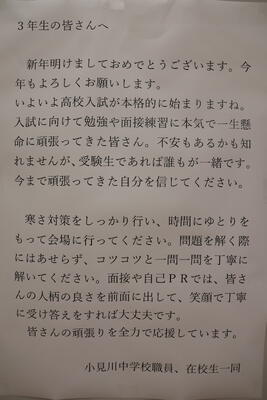 ３年生の皆さんへ
新年明けましておめでとうございます。今
年もよろしくお願いします。
いよいよ高校入試が本格的に始まりますね。
入試に向けて勉強や面接練習に本気で一生懸
命に頑張ってきた皆さん。不安もあるかも知
れませんが、受験生であれば誰もが一緒です。
今まで頑張ってきた自分を信じてください。
寒さ対策をしっかり行い、時間にゆとりを
もって会場に行ってください。問題を解く際
にはあせらず、コツコツと一問一問を丁寧に
解いてください。面接や自己ＰＲでは、皆さ
んの人柄の良さを前面に出して、笑顔で丁寧
に受け答えをすれば大丈夫です。
皆さんの頑張りを全力で応援しています。
小見川中学校職員、在校生一同